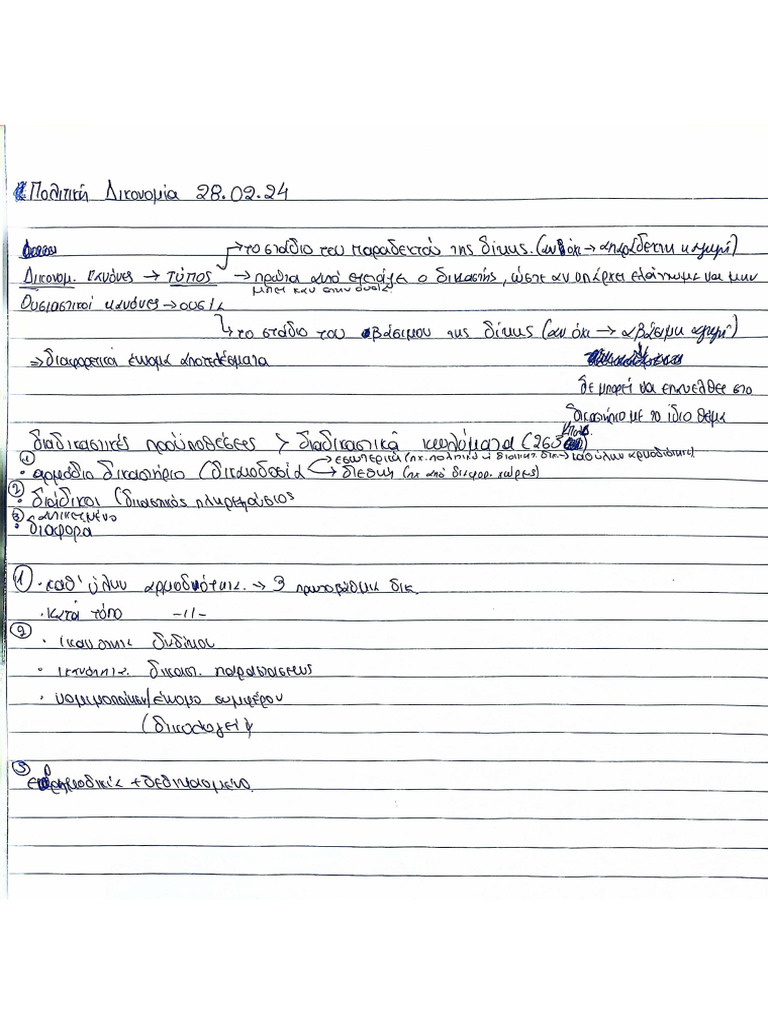 Πολιτική Δικονομία 28.02.24
→ το στάδιο του παραδεκτού της δίκης. (αν όχι → απαράδεκτη αγωγή)
Δικονομ. κανόνες → ΤΥΠΟΣ → πρώτα αυτό ελέγχει ο δικαστής, ώστε αν υπάρχει ελάττωμα να μην
μπει καν στην ουσία.
Ουσιαστικοί κανόνες → ουσία
↳ το στάδιο του βάσιμου της δίκης (αν όχι → αβάσιμη αγωγή)
⇒ διαφορετικά έννομα αποτελέσματα
δε μπορεί να επανέλθει στο
δικαστήριο με το ίδιο θέμα
διαδικαστικές προϋποθέσεις > διαδικαστικά κωλύματα (263
① → εσωτερική (πχ. πολιτικό ή διοικητ. δικ. → καθ' ύλην αρμοδιότητα)
• αρμόδιο δικαστήριο (δικαιοδοσία → διεθνή (πχ από διαφορ. χώρες)
② • διάδικοι (δικαστικός πληρεξούσιος
③ αντικείμενο
• διαφορά
① • καθ' ύλην αρμοδιότητα. → 3 πρωτοβάθμια δικ.
• κατά τόπο -//-
②
• ικανότητα διαδίκου
• ικανότητα δικαστ. παραστάσεως
• νομιμοποίηση/έννομο συμφέρον
(δικολογεί
③
εκκρεμοδικία + δεδικασμένο.